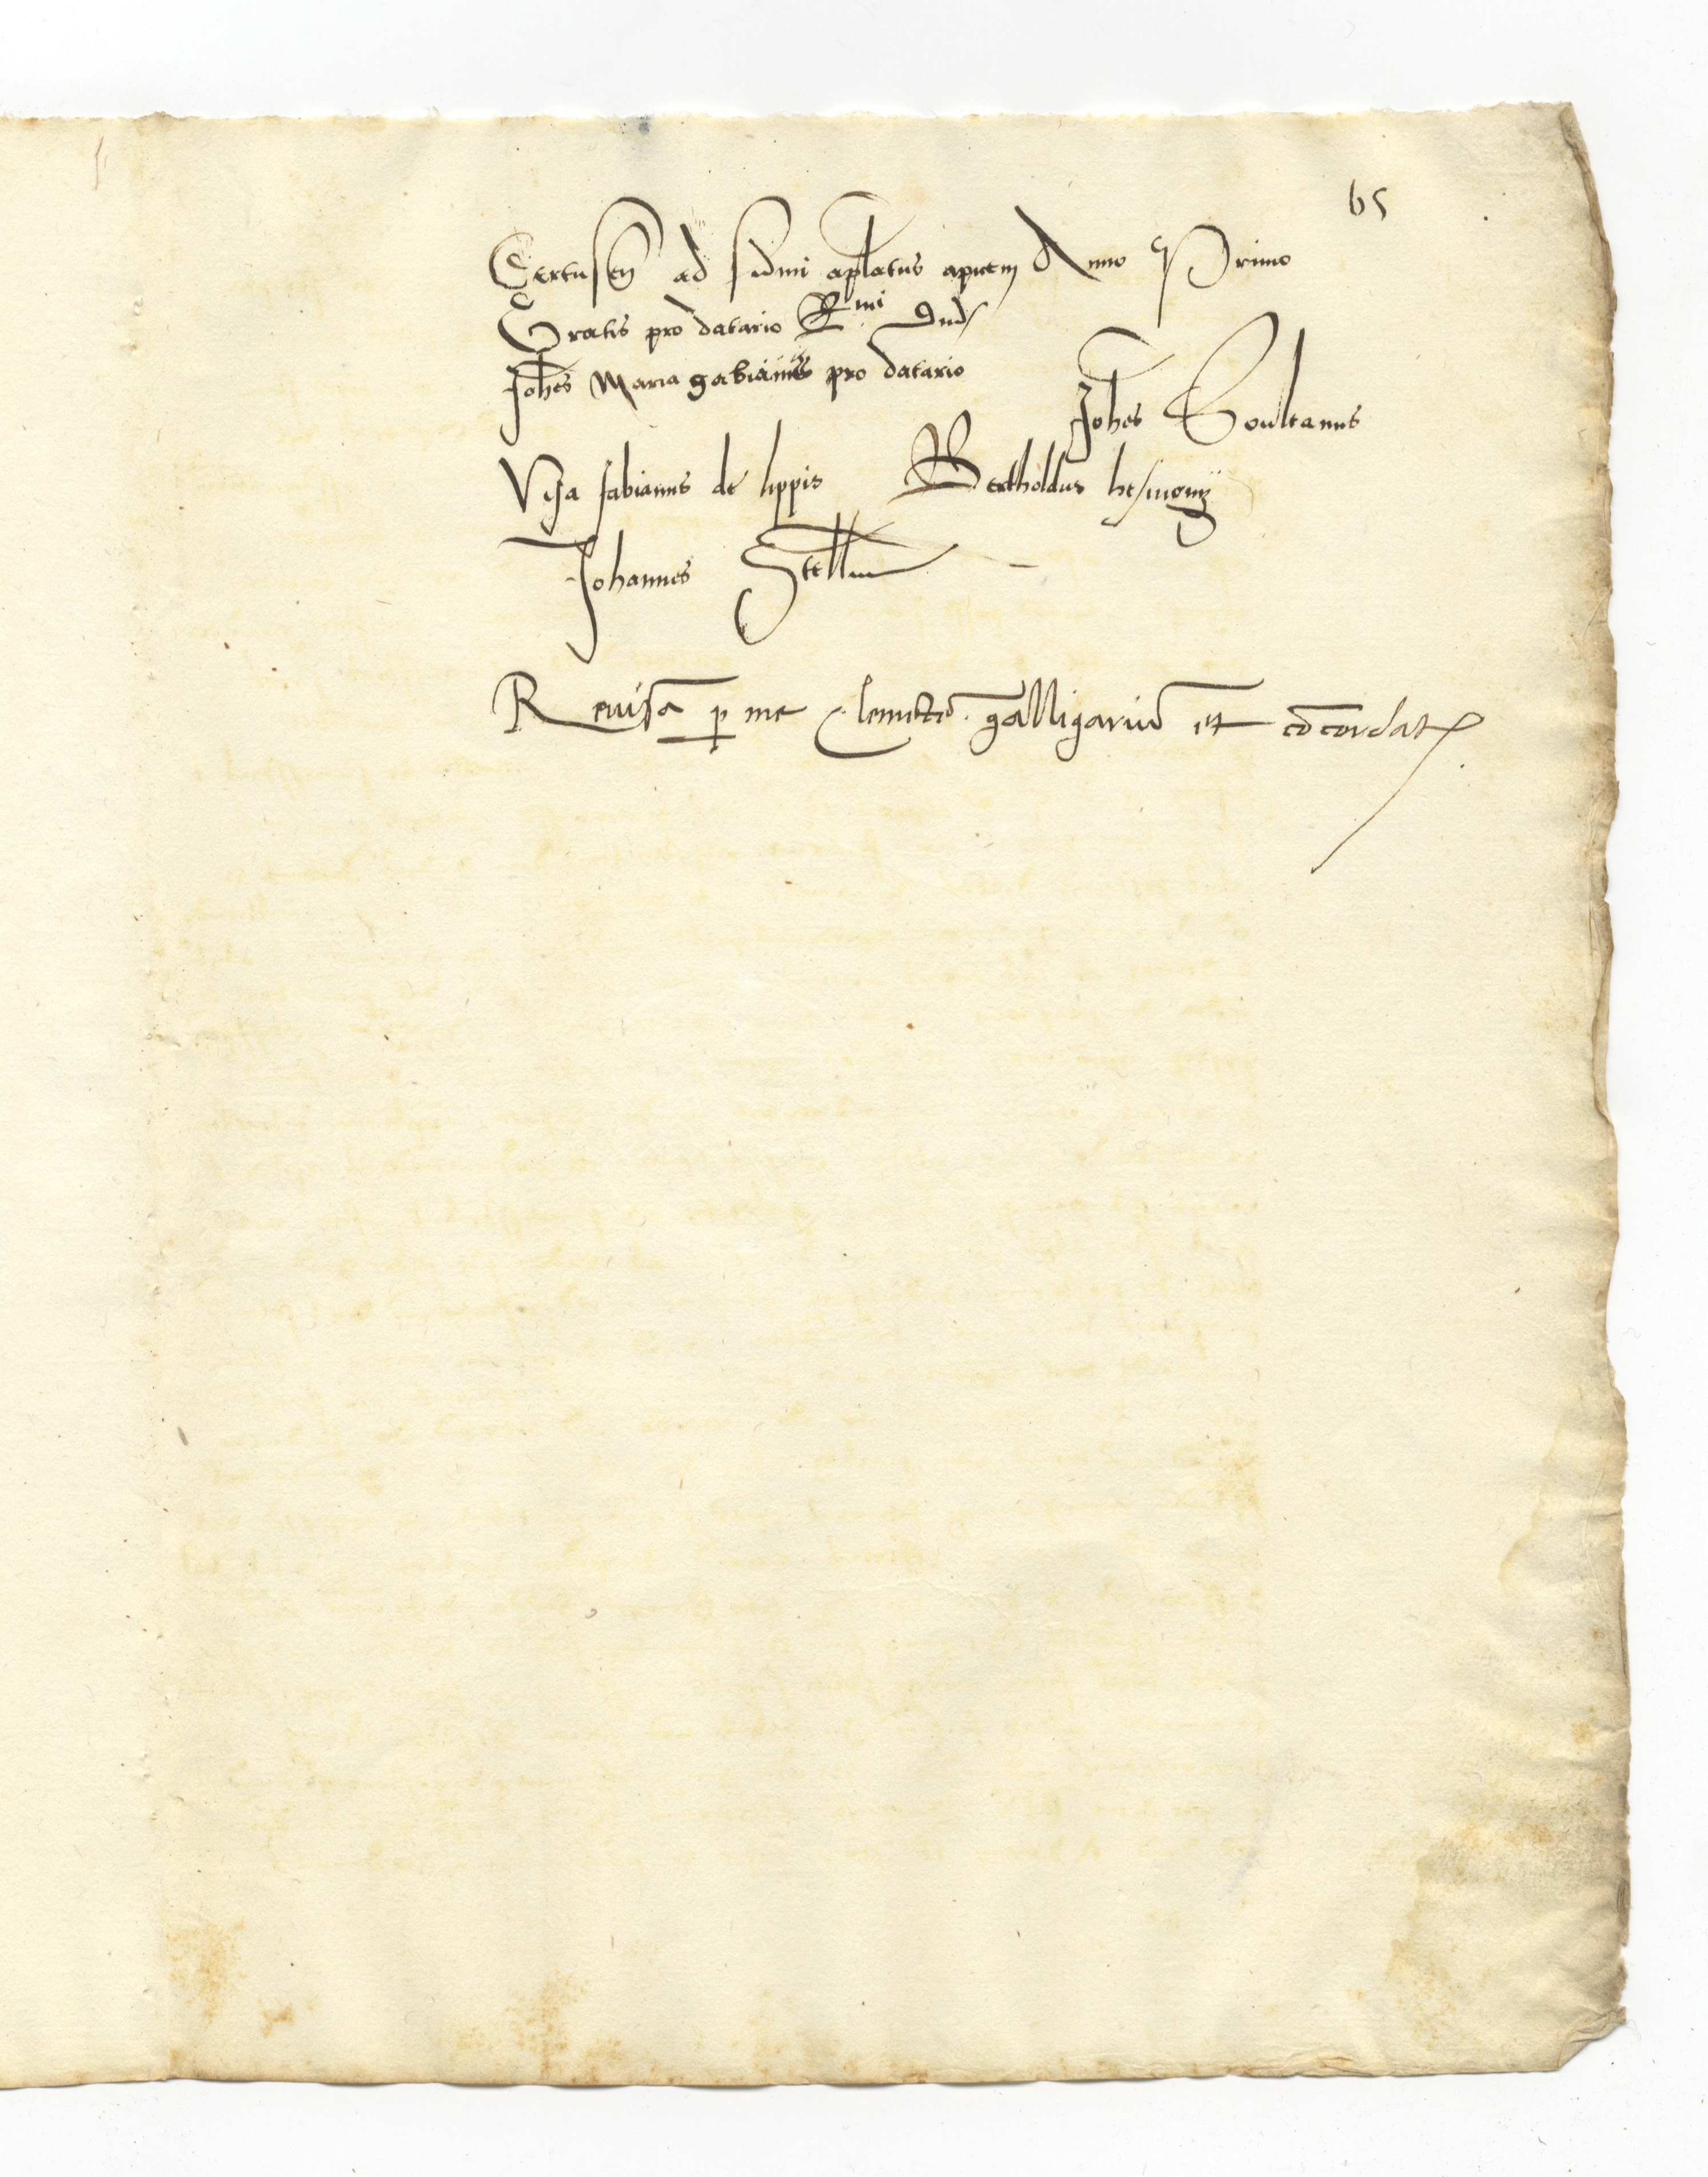 65
ad summi aplatus apicem Anno Primo
Gratis pro datario Rmi dnd
Johes Maria gabianus pro datario
Johes Goultanus
Visa fabianus de lippis Bertholdus
Johannes Stella
Revisa p me Clemete galligariu et cocordat